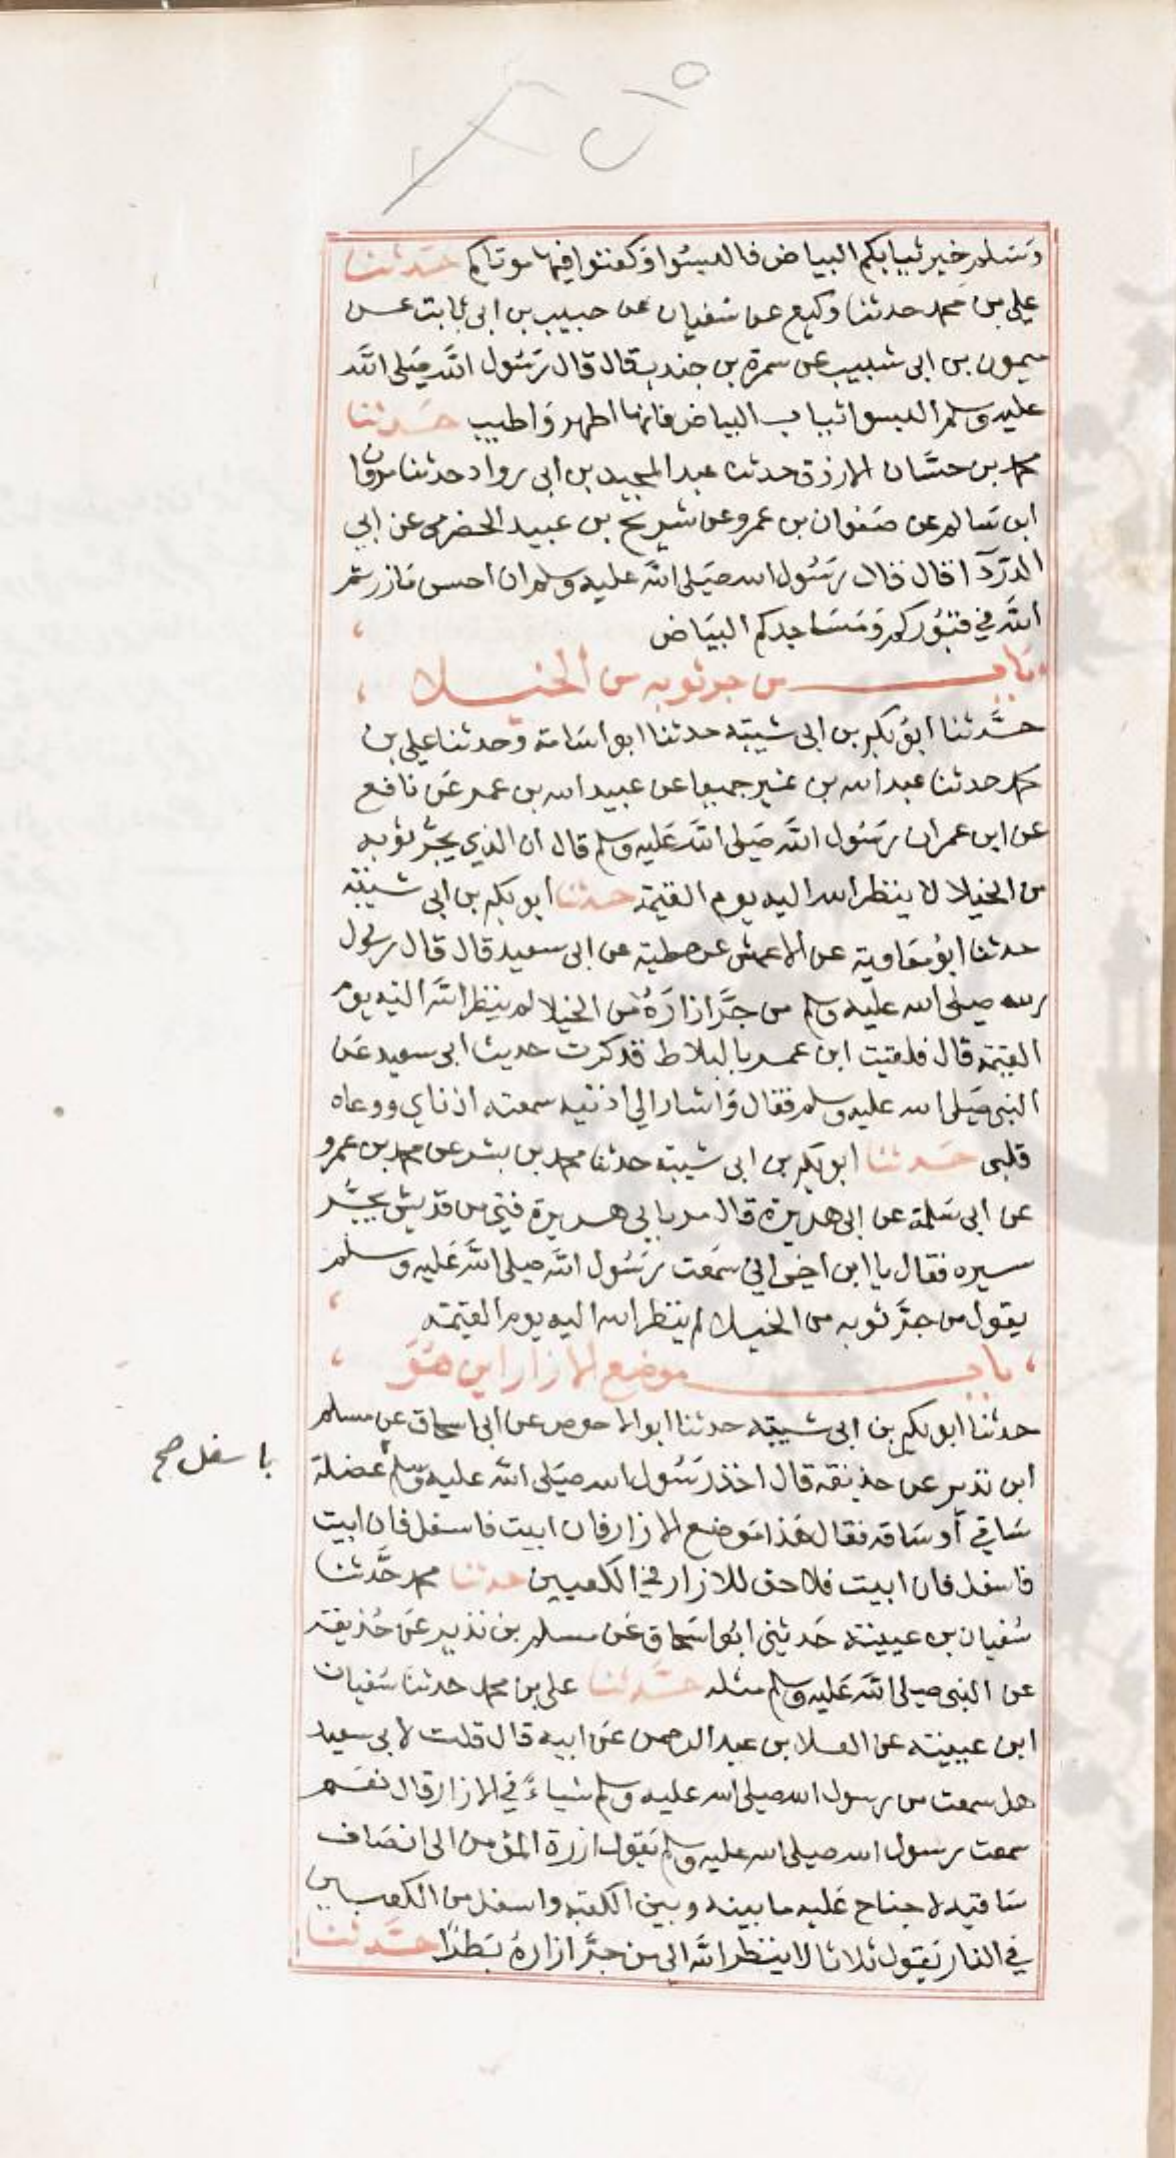 وسلم خير ثيابكم البياض فالبسوا وكفنوا فيها موتاكم حدثنا
علي بن محمد حدثنا وكيع عن سفيان عن حبيب بن ابي ثابت عن
ميمون بن ابي شبيب عن سمرة بن جندب قال قال رسول الله صلى الله
عليه وسلم البسوا ثياب البياض فانها اطهر واطيب حدثنا
محمد بن حسان الازرق حدثنا عبد المجيد بن ابي رواد حدثنا مروان
ابن سالم عن صفوان بن عمرو عن شريح بن عبيد الحضرمي عن ابي
الدردآ قال قال رسول الله صلى الله عليه وسلم ان احسن ما زرتم
الله في قبوركم ومساجدكم البياض
باب من جر ثوبه من الخيلا
حدثنا ابو بكر بن ابي شيبة حدثنا ابو اسامة وحدثنا علي بن
محمد حدثنا عبد الله بن نمير جميعا عن عبيد الله بن عمر عن نافع
عن ابن عمر ان رسول الله صلى الله عليه وسلم قال ان الذي يجر ثوبه
من الخيلا لا ينظر الله اليه يوم القيمة حدثنا ابو بكر بن ابي شيبة
حدثنا ابو معاوية عن الاعمش عن عطية عن ابي سعيد قال قال رسول
الله صلى الله عليه وسلم من جر ازاره من الخيلا لم ينظر الله اليه يوم
القيمة قال فلقيت ابن عمر بالبلاط فذكرت حديث ابي سعيد عن
النبي صلى الله عليه وسلم فقال واشار الي اذنيه سمعته اذناي ووعاه
قلبي حدثنا ابو بكر بن ابي شيبة حدثنا محمد بن بشر عن محمد بن عمرو
عن ابي سلمة عن ابي هريرة قال مر بابي هريرة فتى من قريش يجر
سيره فقال يا ابن اخي اني سمعت رسول الله صلى الله عليه وسلم
يقول من جر ثوبه من الخيلا لم ينظر الله اليه يوم القيمة
باب موضع الازار اين هو
حدثنا ابو بكر بن ابي شيبة حدثنا ابو الاحوص عن ابي اسحاق عن مسلم
ابن نذير عن حذيفة قال اخذ رسول الله صلى الله عليه وسلم عضلة
باسفل صح
ساقي أو ساقه فقال هذا موضع الازار فان ابيت فاسفل فان ابيت
فاسفل فان ابيت فلا حق للازار في الكعبين حدثنا محمد حدثنا
سفيان بن عيينة حدثني ابو اسحاق عن مسلم بن نذير عن حذيفة
عن النبي صلى الله عليه وسلم مثله حدثنا علي بن محمد حدثنا سفيان
ابن عيينة عن العلا بن عبد الرحمن عن ابيه قال قلت لابي سعيد
هل سمعت من رسول الله صلى الله عليه وسلم شياء في الازار قال نعم
سمعت رسول الله صلى الله عليه وسلم يقول ازرة المؤمن الى انصاف
ساقيه لا جناح عليه ما بينه وبين الكعبه واسفل من الكعبين
في النار يقول ثلاثا لا ينظر الله الى من جر ازاره بطرا حدثنا